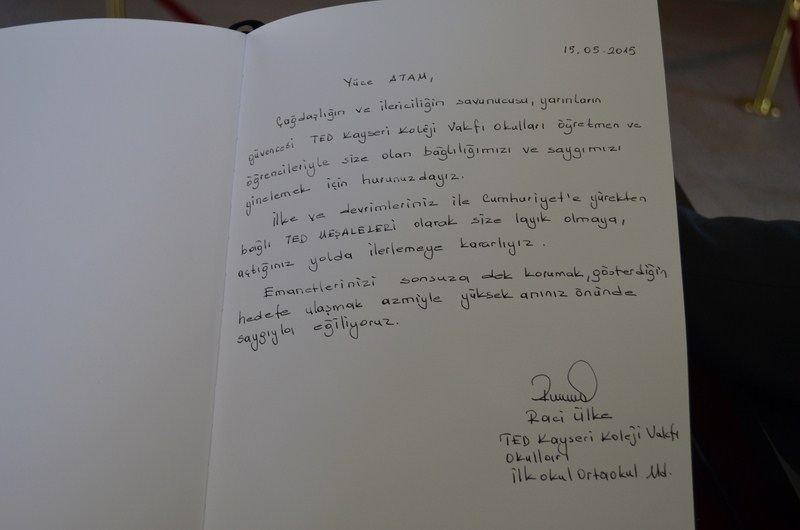 15.05.2015
Yüce ATAM,
Çağdaşlığın ve ilericiliğin savunucusu, yarınların
güvencesi TED Kayseri Koleji Vakfı Okulları öğretmen ve
öğrencileriyle size olan bağlılığımızı ve saygımızı
yinelemek için hurunuzdayız.
İlke ve devrimleriniz ile Cumhuriyet'e yürekten
bağlı TED MEŞALELERİ olarak size layık olmaya,
açtığınız yolda ilerlemeye kararlıyız.
Emanetlerinizi sonsuza dek korumak, gösterdiğin
hedefe ulaşmak azmiyle yüksek anınız önünde
saygıyla eğiliyoruz.
Raci Ülke
TED Kayseri Koleji Vakfı
Okulları
İlkokul Ortaokul Md.